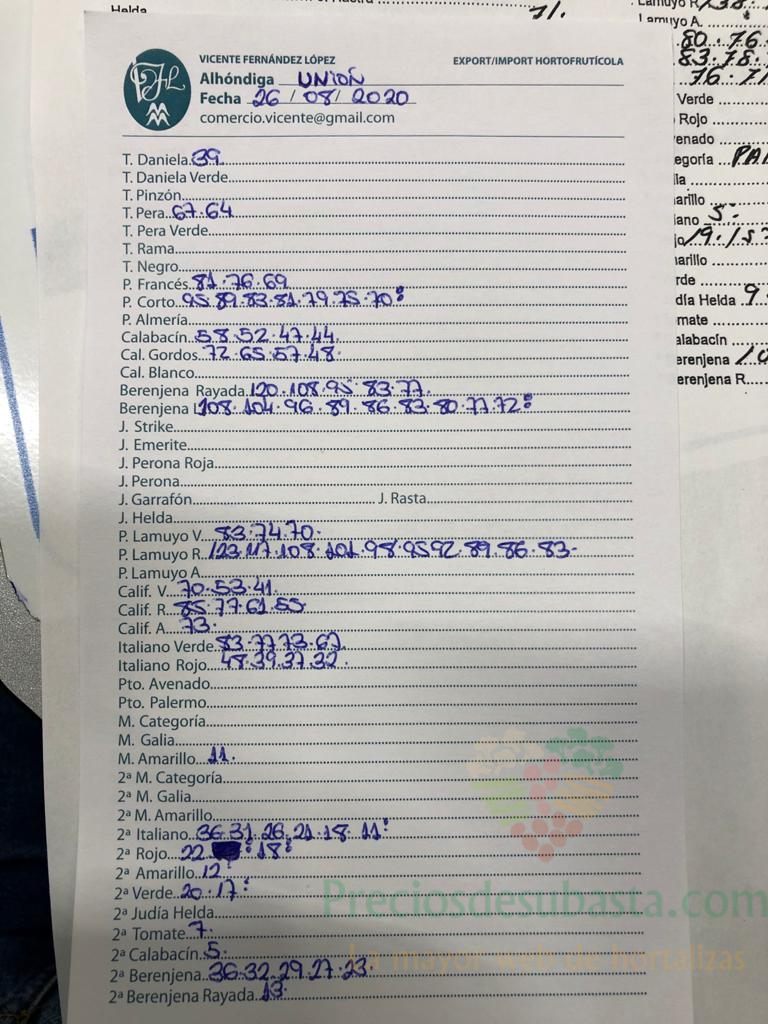 Helda
71.
Lamuyo R
Lamuyo A.
80.76
83.78.
76.71
VICENTE FERNÁNDEZ LÓPEZ
EXPORT/IMPORT HORTOFRUTÍCOLA
Alhóndiga UNION
Fecha 26/08/2020
comercio.vicente@gmail.com
T. Daniela 39
T. Daniela Verde
T. Pinzón
T. Pera 67.64
T. Pera Verde
T. Rama
T. Negro
P. Francés 81.76.69
P. Corto 95.89.83.81.79.75.70:
P. Almería
Calabacín 58.52.47.44.
Cal. Gordos 72.65.57.48.
Cal. Blanco
Berenjena Rayada 120.108.95.83.77.
Berenjena L 108.104.96.89.86.83.80.77.72:
J. Strike
J. Emerite
J. Perona Roja
J. Perona
J. Garrafón J. Rasta
J. Helda
P. Lamuyo V. 83.74.70.
P. Lamuyo R. 123.117.108.101.98.95 92.89.86.83.
P. Lamuyo A
Calif. V. 70.53.41.
Calif. R. 85.77.61.55
Calif. A. 73.
Italiano Verde 83.77.73.67
Italiano Rojo 48.39.37.32.
Pto. Avenado
Pto. Palermo
M. Categoría
M. Galia
M. Amarillo 11.
2ª M. Categoría
2ª M. Galia
2ª M. Amarillo
2ª Italiano 36.31.26.21.18.11:
2ª Rojo 22 18:
2ª Amarillo 12
2ª Verde 20.17:
2ª Judía Helda
2ª Tomate 7.
2ª Calabacín 5.
2ª Berenjena 36.32.29.27.23.
2ª Berenjena Rayada 13.
Verde
Rojo
enado
egoría
lla
arillo
iano 5:
jo 19.15
arillo
rde
día Helda 9
mate
alabacín
erenjena 10
erenjena R
Preciosdesubasta.com
La mayor web de hortalizas